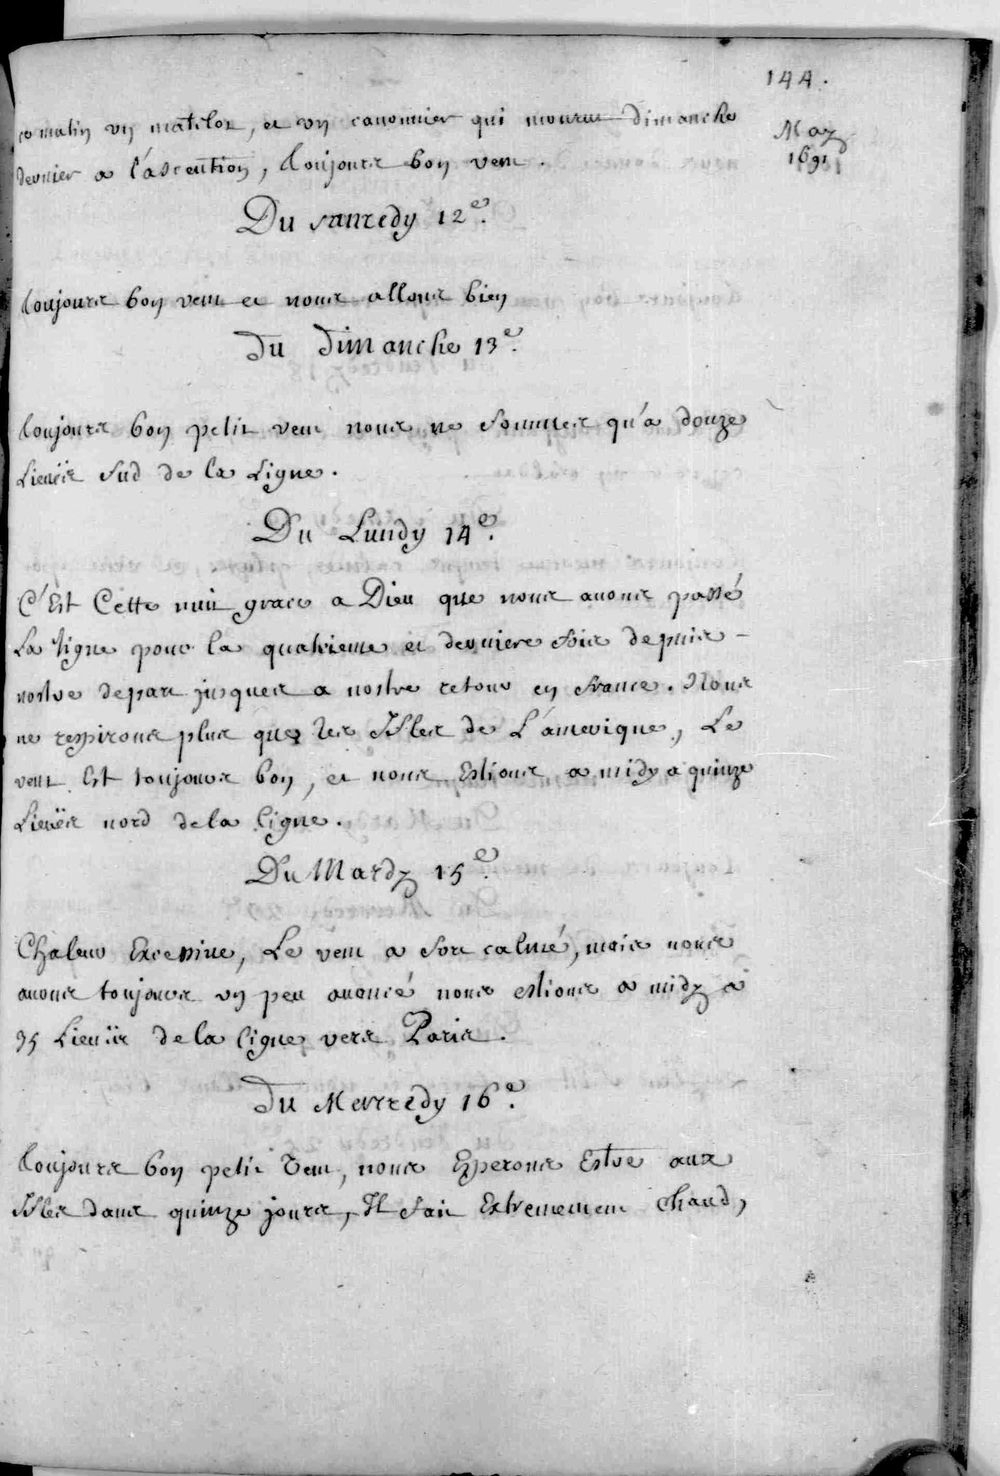 144.
May
1691
ce matin vn matelot, et vn canonnier qui mourut dimanche
dernier a l'ascention, toujours bon vent.
Du samedy 12e.
toujours bon vent et nous allons bien
du dimanche 13e.
toujours bon petit vent nous ne sommes qu'a douze
Lieuës sud de la Ligne.
Du Lundy 14e.
C'Est Cette nuit grace a Dieu que nous auons passé
La ligne pour la quatrieme et derniere fois depuis
nostre depart jusques a nostre retour en france. Nous
ne respirons plus que les Isles de L'amerique, Le
vent Est toujours bon, et nous Estions a midy a quinze
Lieuës nord de la ligne.
Du Mardy 15e.
Chaleur Excessive, Le vent a fort calmé, mais nous
auons toujours vn peu auancé nous estions a midy a
35 Lieuës de la ligne vers Paris.
du Mecredy 16e.
toujours bon petit vent, nous Esperons Estre aux
Isles dans quinze jours, Il fait Extremement chaud,